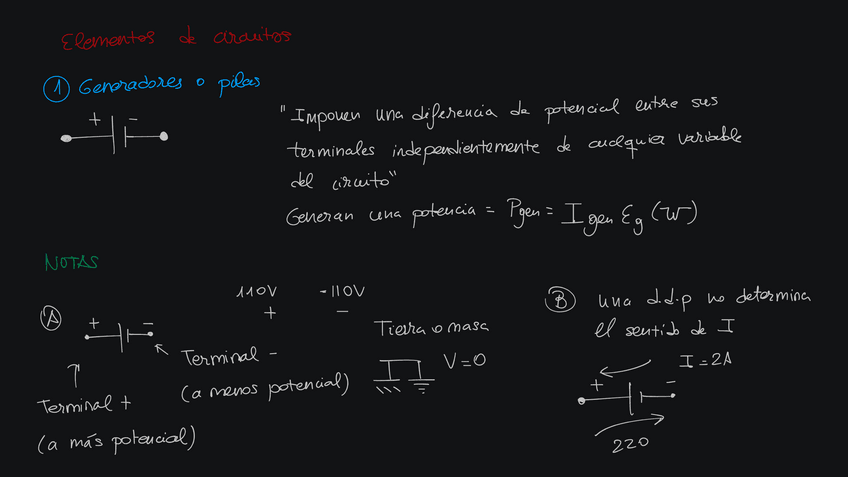 Elementos de circuitos
1 Generadores o pilas
+ -
"Imponen una diferencia de potencial entre sus
terminales independientemente de cualquier variable
del circuito"
Generan una potencia = Pgen = I gen Eg (W)
NOTAS
A
+ -
Terminal +
(a más potencial)
110V -110V
+ -
Terminal -
(a menos potencial)
Tierra o masa
V=0
B una d.d.p no determina
el sentido de I
I=2A
+ -
220